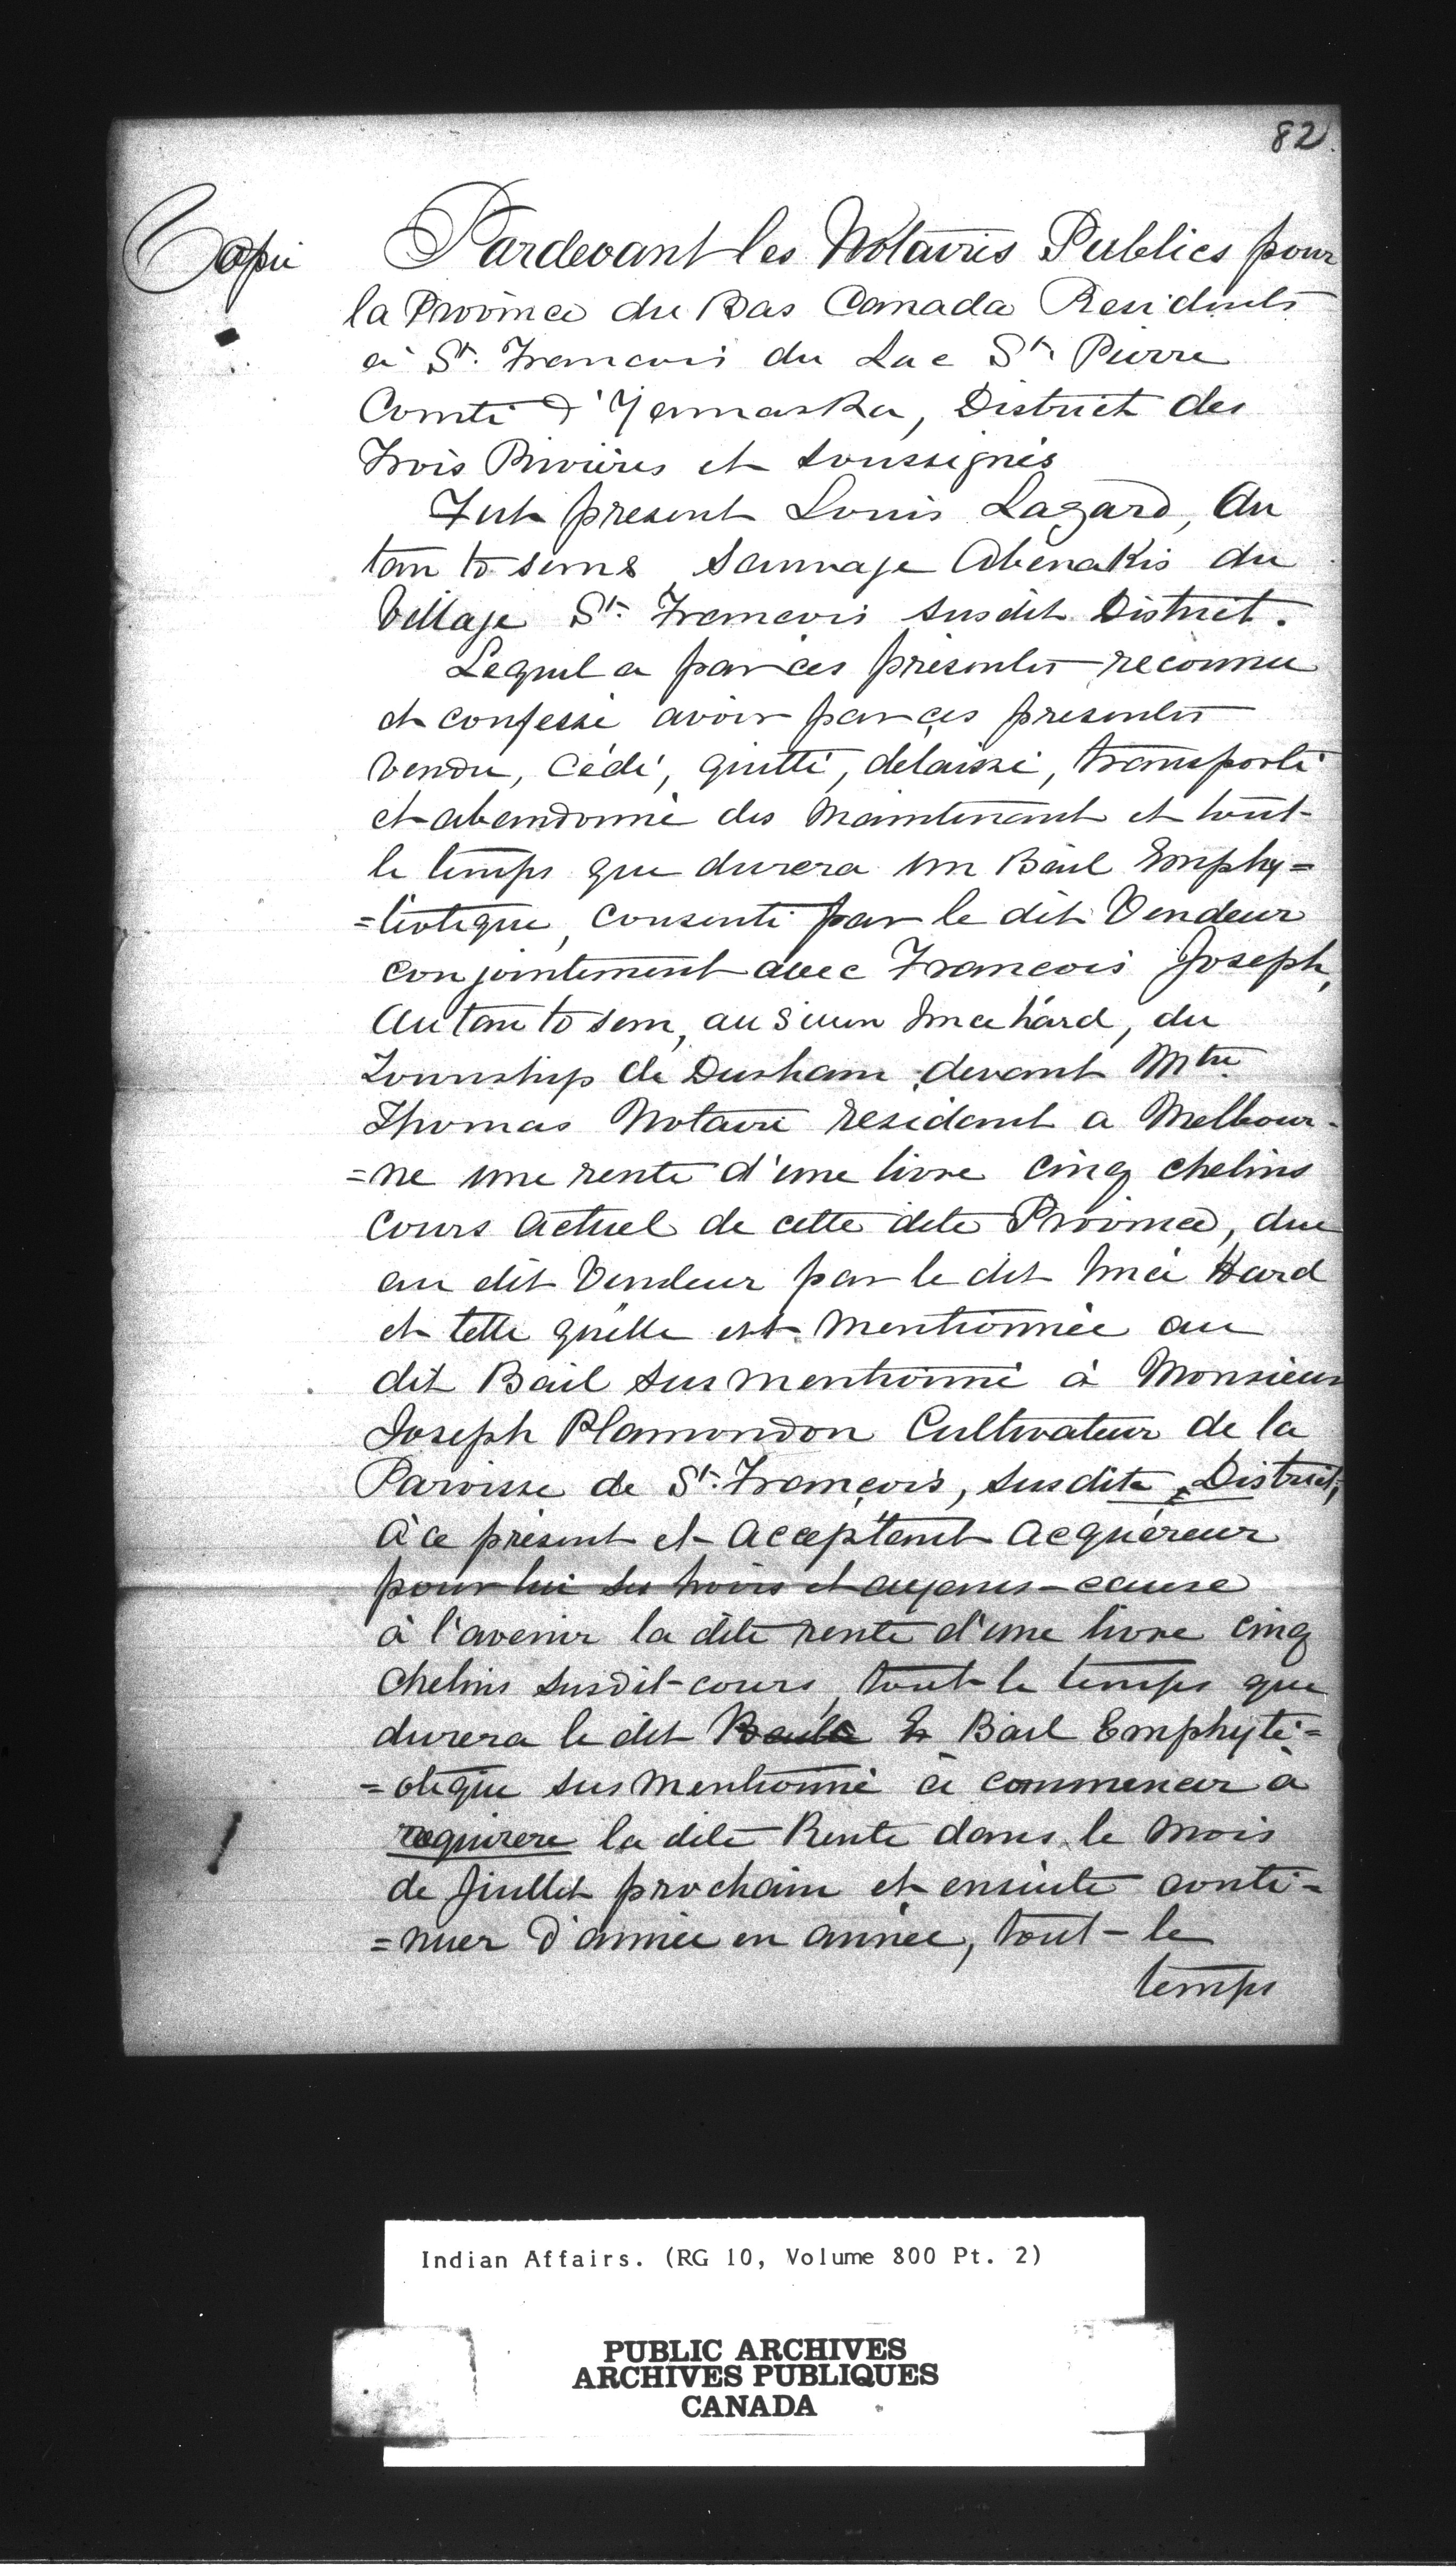 82.
Copie
Pardevant les Notaires Publics pour
la Province du Bas Canada Residents
à St. Francois du Lac St. Pierre
Comté d'Yamaska, District des
Trois Rivières et soussignés
Fut présent Louis Lazard, Au
tan to sems, Sauvage Abenakis du
Village St. Francois susdit District.
Lequel a par ces présentes reconnu
et confessé avoir par ces presentes
vendu, cédé, quitté, délaissé, transporté
et abandonné dès maintenant et tout
le temps que durera un Bail Emphy=
=téotique, consenti par le dit Vendeur
conjointement avec Francois Joseph,
Au tan to sem, au Sieur hard, du
Township de Durham devant Mtre
Thomas Notaire residant a Melbour-
=ne une rente d'une livre cinq chelins
cours actuel de cette dite Province, due
au dit Vendeur par le dit Hard
et telle qu'elle est mentionnée au
dit Bail sus mentionné à Monsieur
Joseph Plamondon Cultivateur de la
Paroisse de St. François, susdite District,
à ce présent et acceptant acquéreur
pour lui ses hoirs et ayans-cause
à l'avenir la dite rente d'une livre cinq
chelins susdit cours, tout le temps que
durera le dit Bail Emphyté=
=otique sus mentionné à commencer à
requirere la dite Rente dans le mois
de Juillet prochain et ensuite conti=
=nuer d'année en année, tout-le
temps
Indian Affairs. (RG 10, Volume 800 Pt. 2)
PUBLIC ARCHIVES
ARCHIVES PUBLIQUES
CANADA